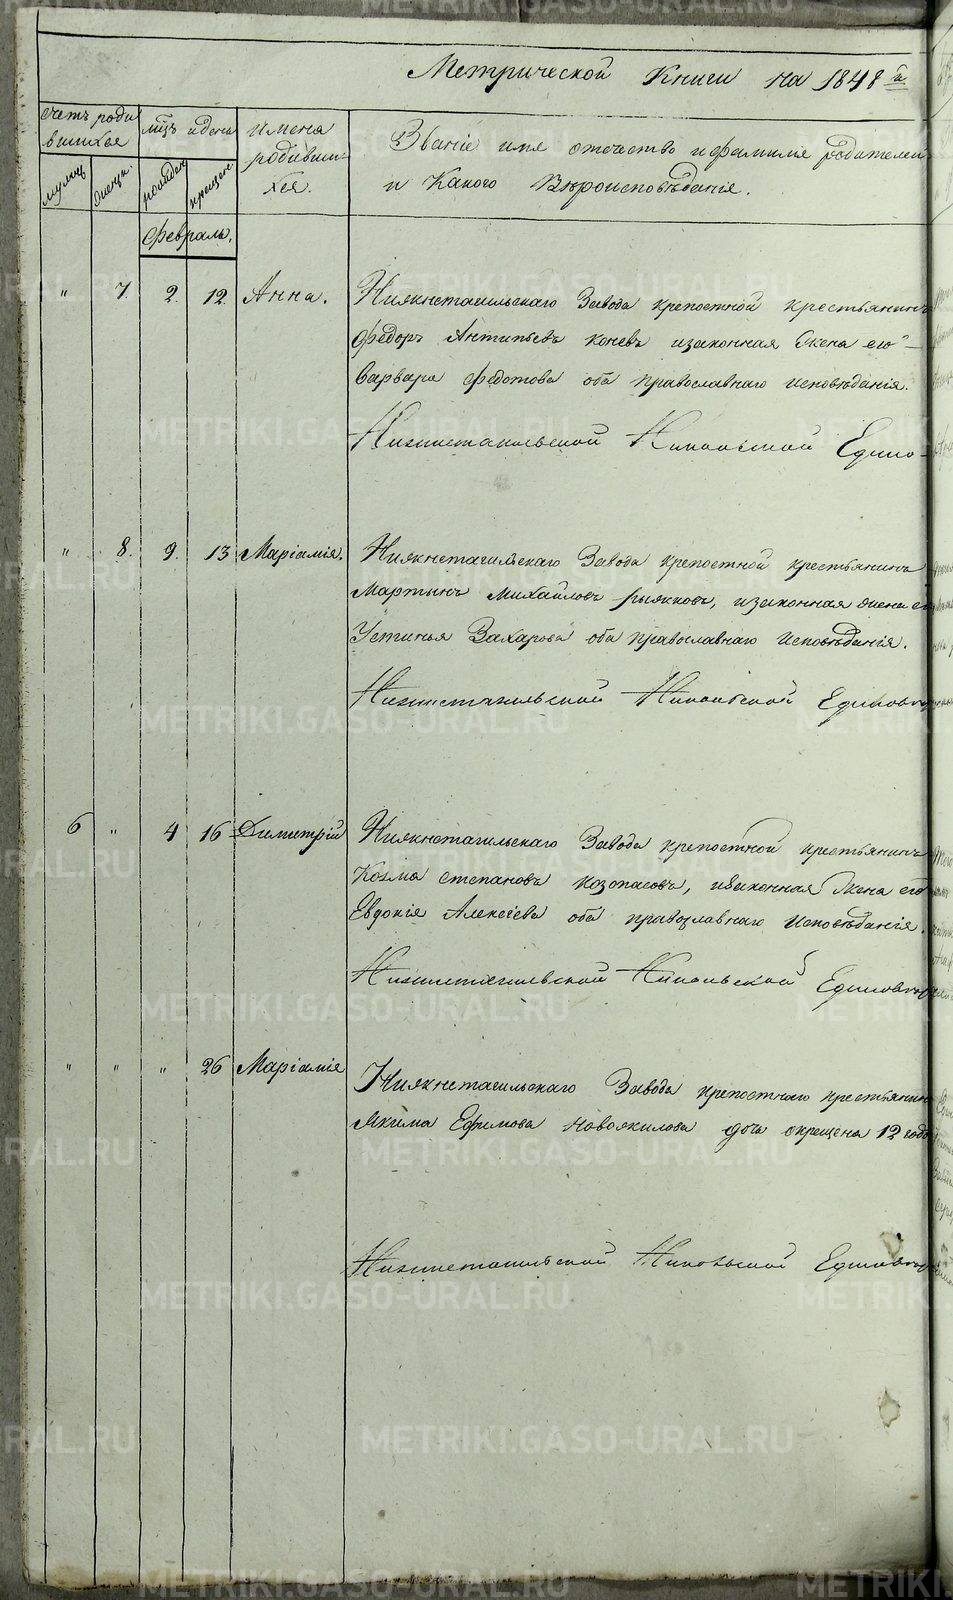 Метрической Книги на 1848 й
Счетъ роди
вшихся
мцъ и день
Имена
родивши-
хся.
Званіе имя отечество и фамилія родителей
и Какого Вѣроисповѣданія.
мужеска
женска
рожден.
крещен.
Февраль.
" 7. 2. 12. Анна. Нижнетагильскаго Завода крепостной крестьянинъ
Федоръ Антипьевъ Коневъ изаконная Жена его
Варвара Федотова оба православнаго исповѣданія.
Нижнетагильской Никольской Едино-
" 8. 9. 13 Маріамія. Нижнетагильскаго Завода крепостной крестьянинъ
Мартынъ Михайловъ Рыжковъ, изаконная жена ег
Устинья Захарова оба православнаго исповѣданія.
Нижнетагильской Никольской Единовер
6 " 4 16 Димитрій Нижнетагильскаго Завода крепостной крестьянинъ
Козма Степановъ Козопасовъ, изаконная Жена его
Евдокія Алексѣева оба православнаго исповѣданія.
Нижнетагильской Никольской Единовер
" " " 26 Маріамія Нижнетагильскаго Завода крепостнаго крестьянин
Якима Ефимова Новоякилова дочь окрещена 12 годо
Нижнетагильской Никольской Единовер
METRIKI.GASO-URAL.RU